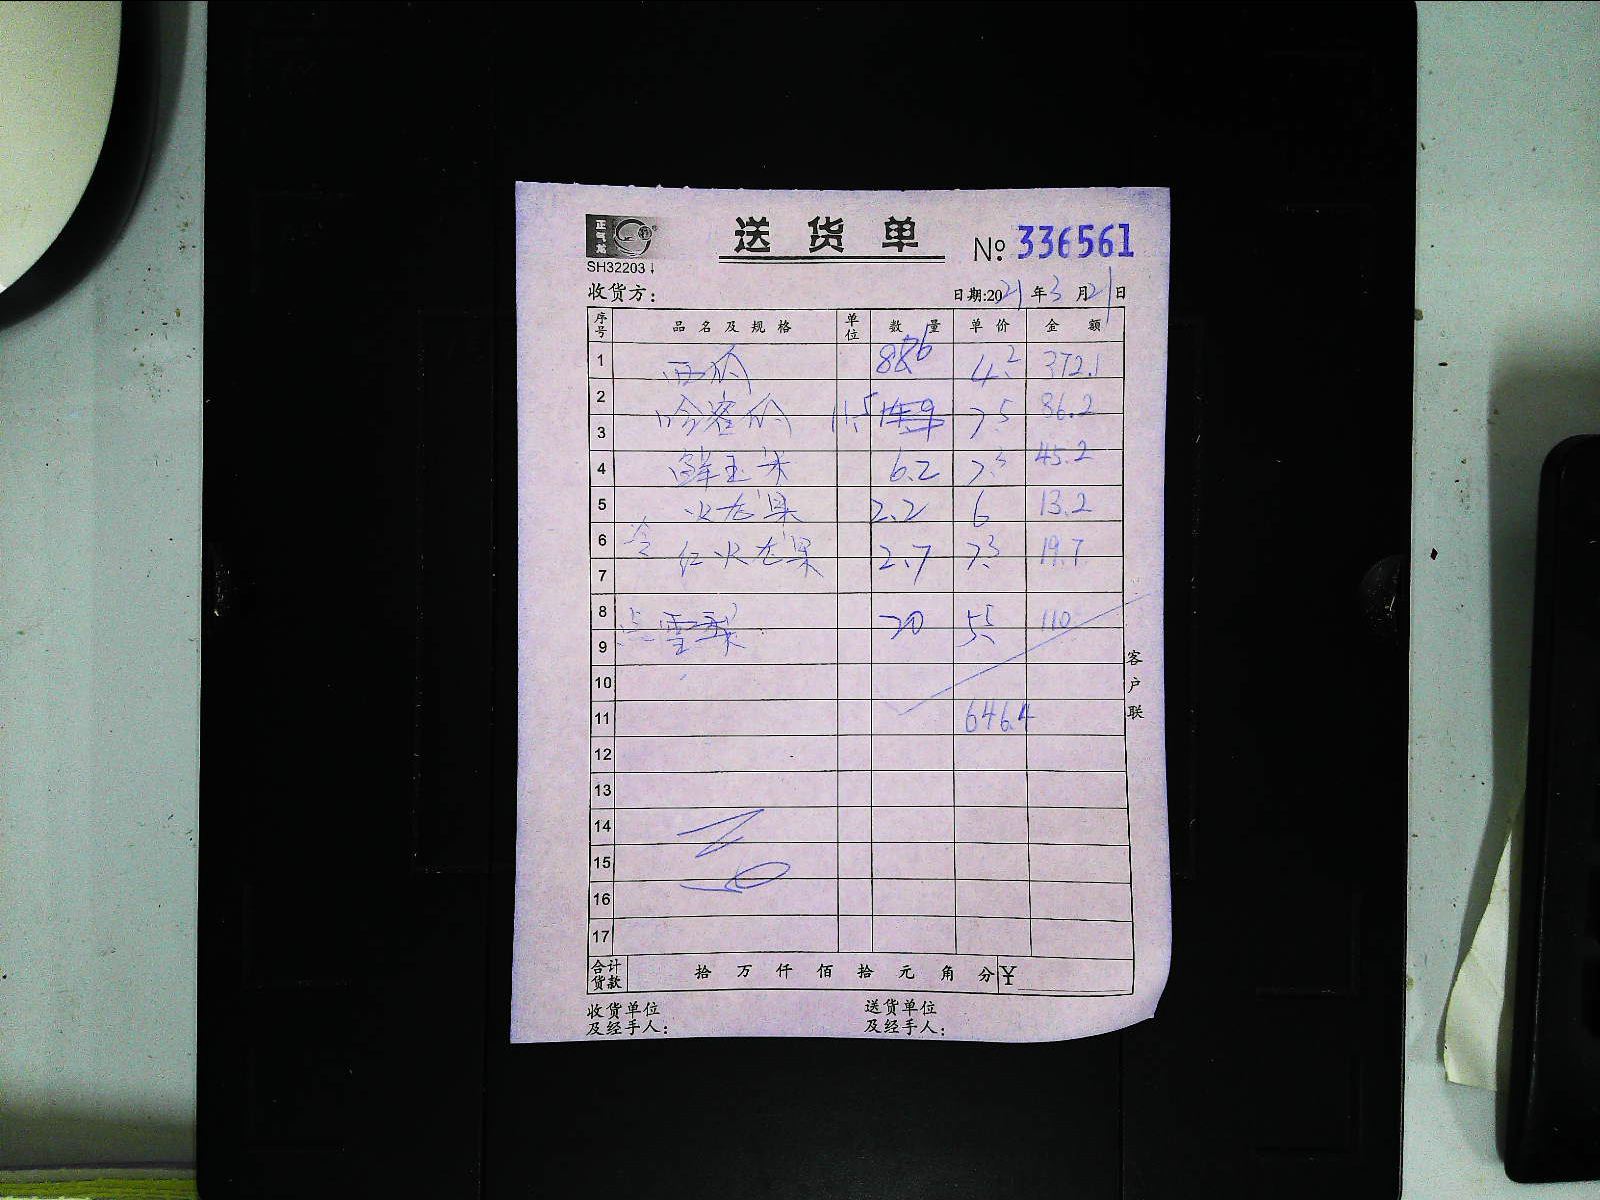 送货单 № 336561
SH32203
收货方: 日期:2021年3月21日
序号 品名及规格 单位 数量 单价 金额
1 西瓜 88.6 4.2 372.1
2 哈密瓜 11.5 7.5 86.2
3
4 鲜玉米 6.2 7.3 45.2
5 火龙果 2.2 6 13.2
6 红火龙果 2.7 7.3 19.7
7
8 雪梨 20 5.5 110
9
10
11 646.4
12
13
14
15
16
17
合计货款 拾万仟佰拾元角分 ¥
收货单位 送货单位
及经手人: 及经手人:
客户联